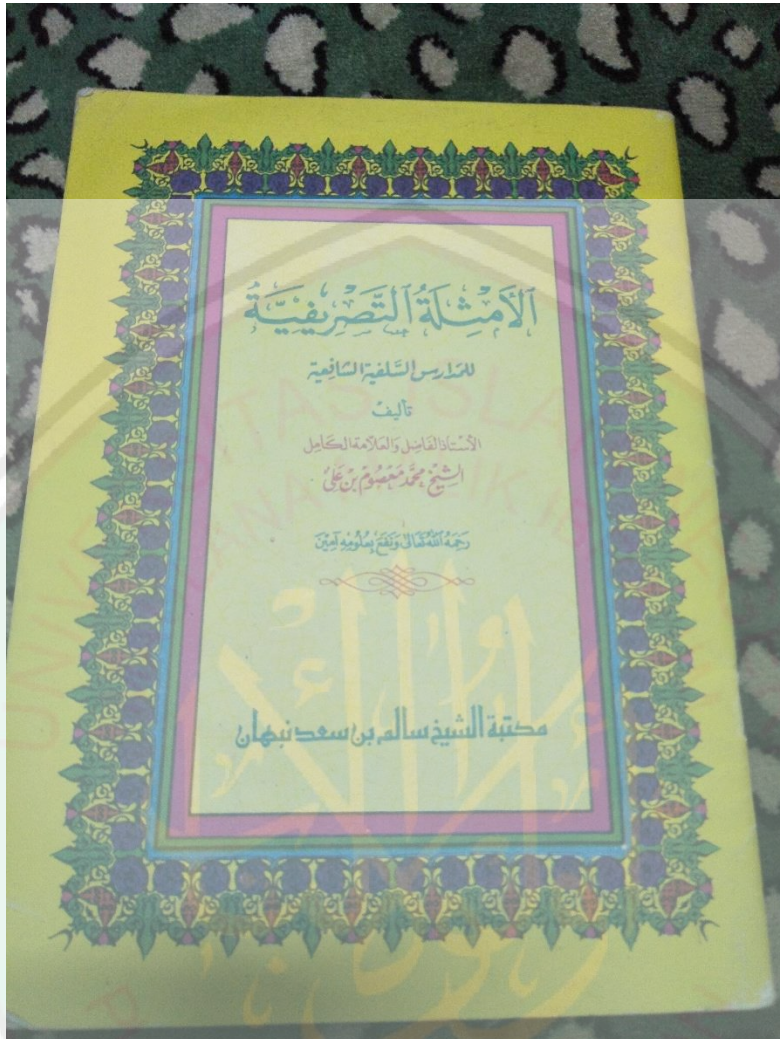 الأَمْثِلَةُ التَّصْرِيفِيَّةُ
للمدارس السّلفية الشافعية
تأليف
الأستاذ الفاضل والعلامة الكامل
الشيخ محمّد معصوم بن علي
رحمه الله تعالى ونفع بعلومه آمين
مكتبة الشيخ سالم بن سعد نبهان